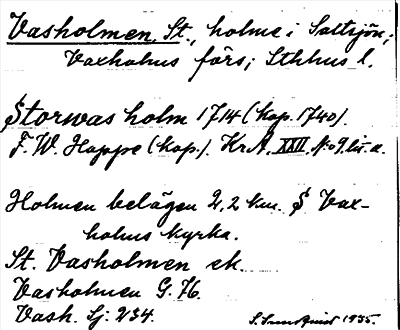 Vasholmen, St., holme i Saltsjön;
Vaxholms förs; Sthlms l.
Storwas holm 1714 (kop. 1740).
F. W. Hoppe (kop.). Kr A. XXII. No 9. lit. a.
Holmen belägen 2,2 km. S Vax-
holms kyrka.
St. Vasholmen ek.
Vasholmen G. 76.
Vash. Lj: 234.
S. Sundquist 1935.